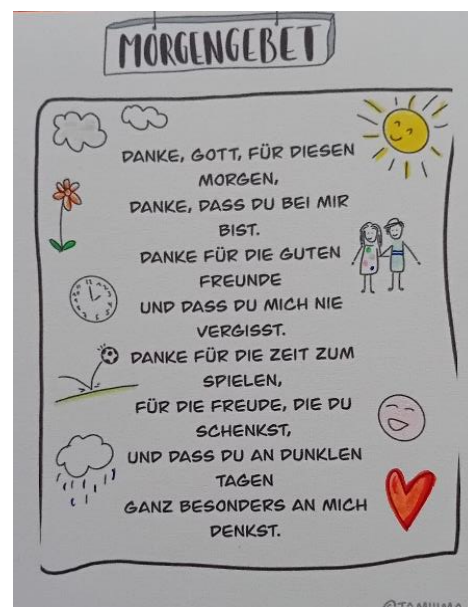 MORGENGEBET
DANKE, GOTT, FÜR DIESEN
MORGEN,
DANKE, DASS DU BEI MIR
BIST.
DANKE FÜR DIE GUTEN
FREUNDE
UND DASS DU MICH NIE
VERGISST.
DANKE FÜR DIE ZEIT ZUM
SPIELEN,
FÜR DIE FREUDE, DIE DU
SCHENKST,
UND DASS DU AN DUNKLEN
TAGEN
GANZ BESONDERS AN MICH
DENKST.